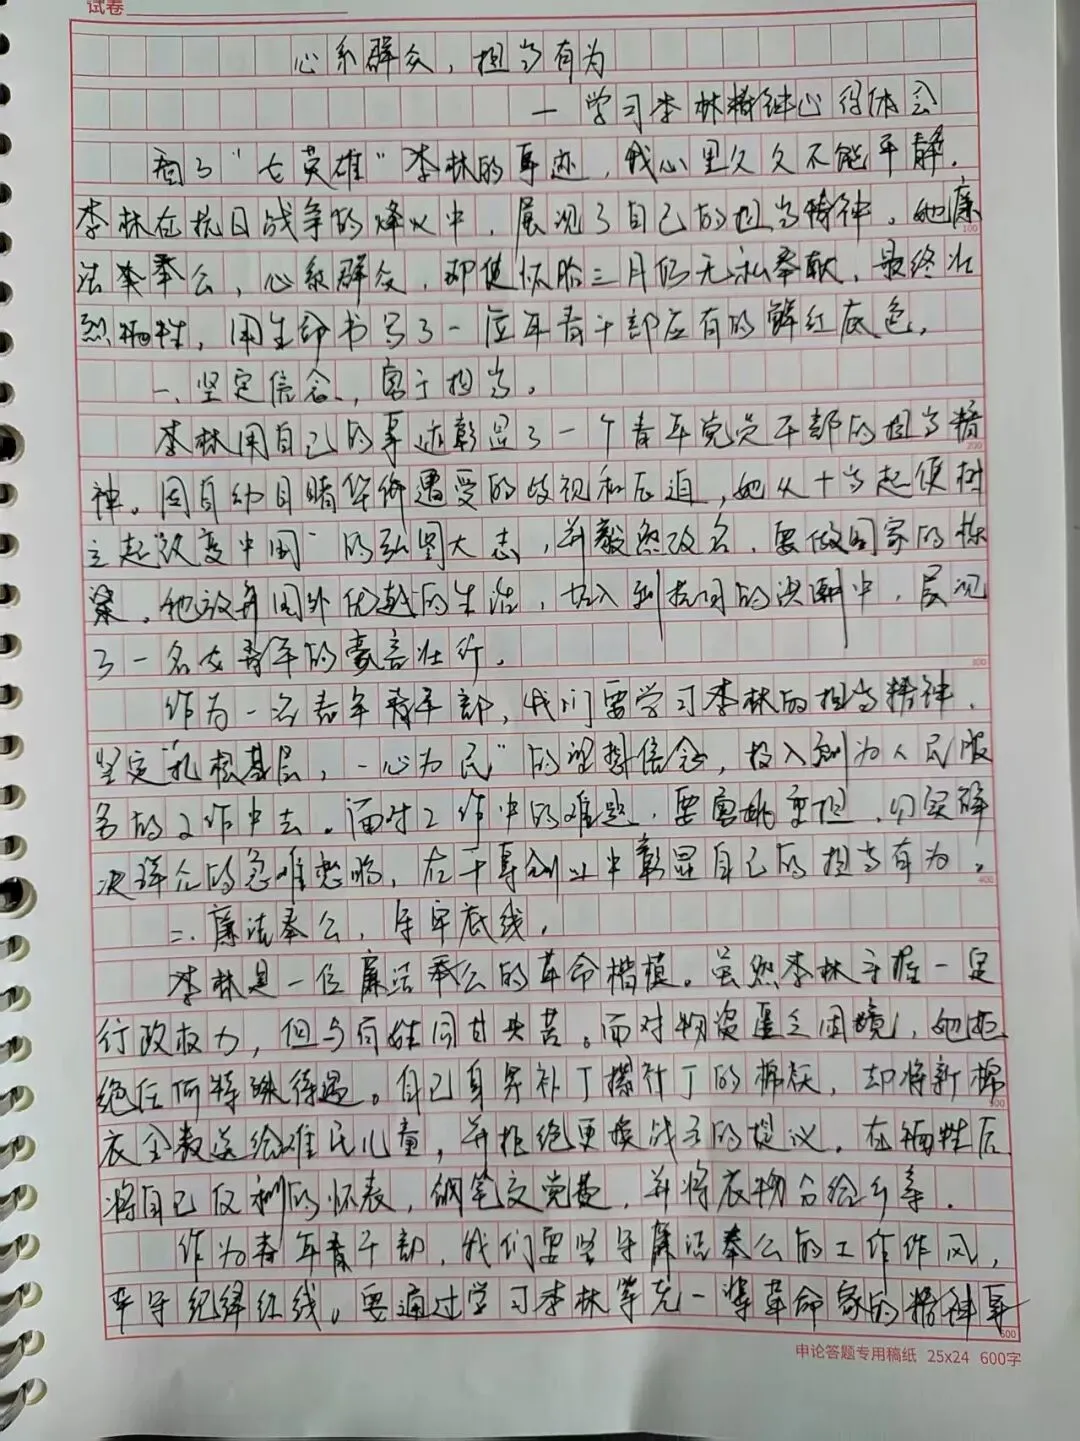 试卷
心系群众，担当有为
—学习李林精神心得体会
看了“七英雄”李林的事迹，我心里久久不能平静。
李林在抗日战争的烽火中，展现了自己的担当精神。她廉
法奉公，心系群众，即使怀胎三月仍无私奉献，最终壮
烈牺牲，用生命书写了一位年青干部应有的鲜红底色。
一、坚定信念，富于担当。
李林用自己的事迹彰显了一个青年党员干部的担当精
神。因自幼目睹华侨遭受的歧视和压迫，她从十岁起便树
立起改变中国”的弘坚大志，并毅然改名，要做国家的栋
梁。她放弃国外优越的生活，投入到抗日的洪潮中，展现
了一名女青年的豪言壮行。
作为一名青年干部，我们要学习李林的担当精神，
坚定“扎根基层，一心为民”的理想信念，投入到为人民服
务的工作中去。面对工作中的难题，要勇挑重担，切实解
决群众的急难愁盼，在干事创业中彰显自己的担当有为。
二、廉洁奉公，守牢底线。
李林是一位廉洁奉公的革命楷模。虽然李林手握一定
行政权力，但与百姓同甘共苦。面对物资匮乏困境，她拒
绝任何特殊待遇。自己身穿补丁摞补丁的棉袄，却将新棉
衣全数送给难民儿童，并拒绝更换战马的提议。在牺牲后
将自己仅剩的怀表，钢笔交党费，并将衣物分给乡亲。
作为青年干部，我们要坚守廉洁奉公的工作作风，
牢守纪律红线。要通过学习李林等先一辈革命家的精神事
100
200
300
400
500
600
申论答题专用稿纸 25x24 600字